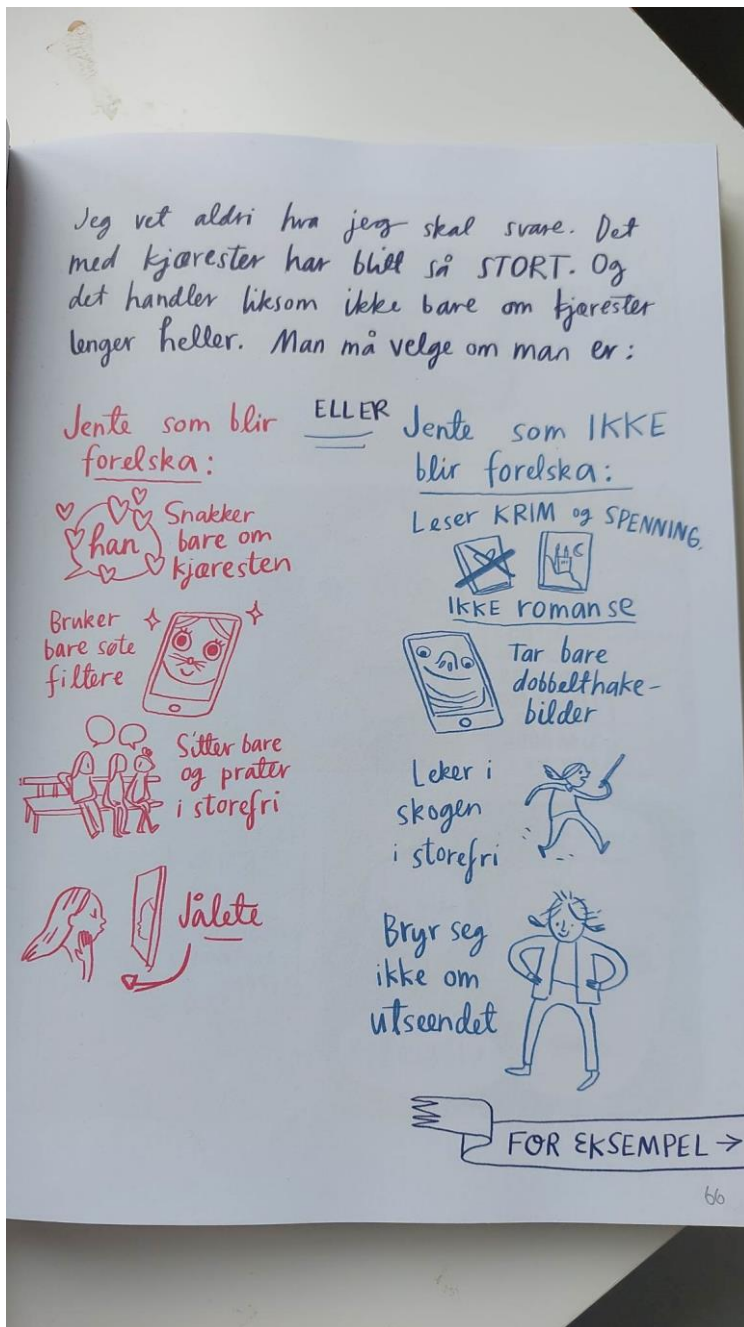 Jeg vet aldri hva jeg skal svare. Det
med kjærester har blitt så STORT. Og
det handler liksom ikke bare om kjærester
lenger heller. Man må velge om man er:
Jente som blir
forelska:
han
Snakker
bare om
kjæresten
Bruker
bare søte
filtere
Sitter bare
og prater
i storefri
Jålete
ELLER
Jente som IKKE
blir forelska:
Leser KRIM og SPENNING.
IKKE romanse
Tar bare
dobbelthake-
bilder
Leker i
skogen
i storefri
Bryr seg
ikke om
utseendet
FOR EKSEMPEL →
66